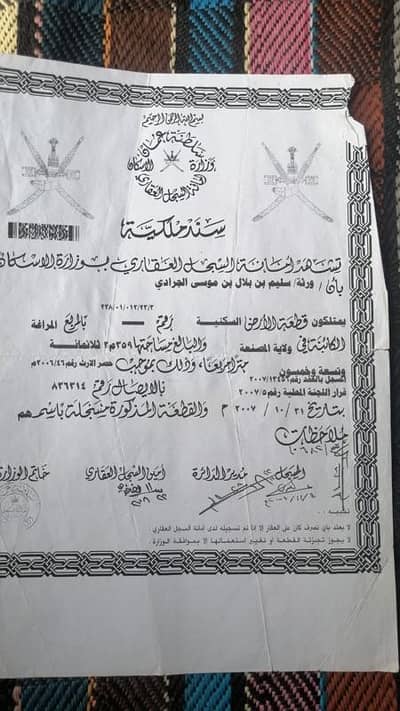 بسم الله الرحمن الرحيم
سلطنة عمان
وزارة الاسكان
امانة السجل العقاري
سند ملكية
تشهد امانة السجل العقاري بوزارة الاسكان
بأن / ورثة/ سليم بن بلال بن موسى الجرادي
يمتلكون قطعة الأرض السكنية رقم — بالمربع المراغة ٢٣٨/٠١/٠١٢/٢٢/٣
الكائنة في ولاية المصنعة والبالغ مساحتها ٣٥٩م٢ ثلاثمائة
وتسعة وخمسون مترا مربعا، وذلك بموجب حصر الارث رقم ٢٠٠٦/٤٦م
قرار اللجنة المحلية رقم ٢٠٠٧/٥ بالايصال رقم ٨٣٦٣١٤
بتاريخ ٢١ / ١٠ / ٢٠٠٧ م والقطعة المذكورة مسجلة باسمهم
ملاحظات
المسجل مدير الدائرة أمين السجل العقاري خاتم الوزارة
لا يعتد بأي تصرف كان على العقار إلا إذا تم تسجيله لدى أمانة السجل العقاري
لا يجوز تجزئة القطعة أو تغيير استعمالها إلا بموافقة الوزارة .